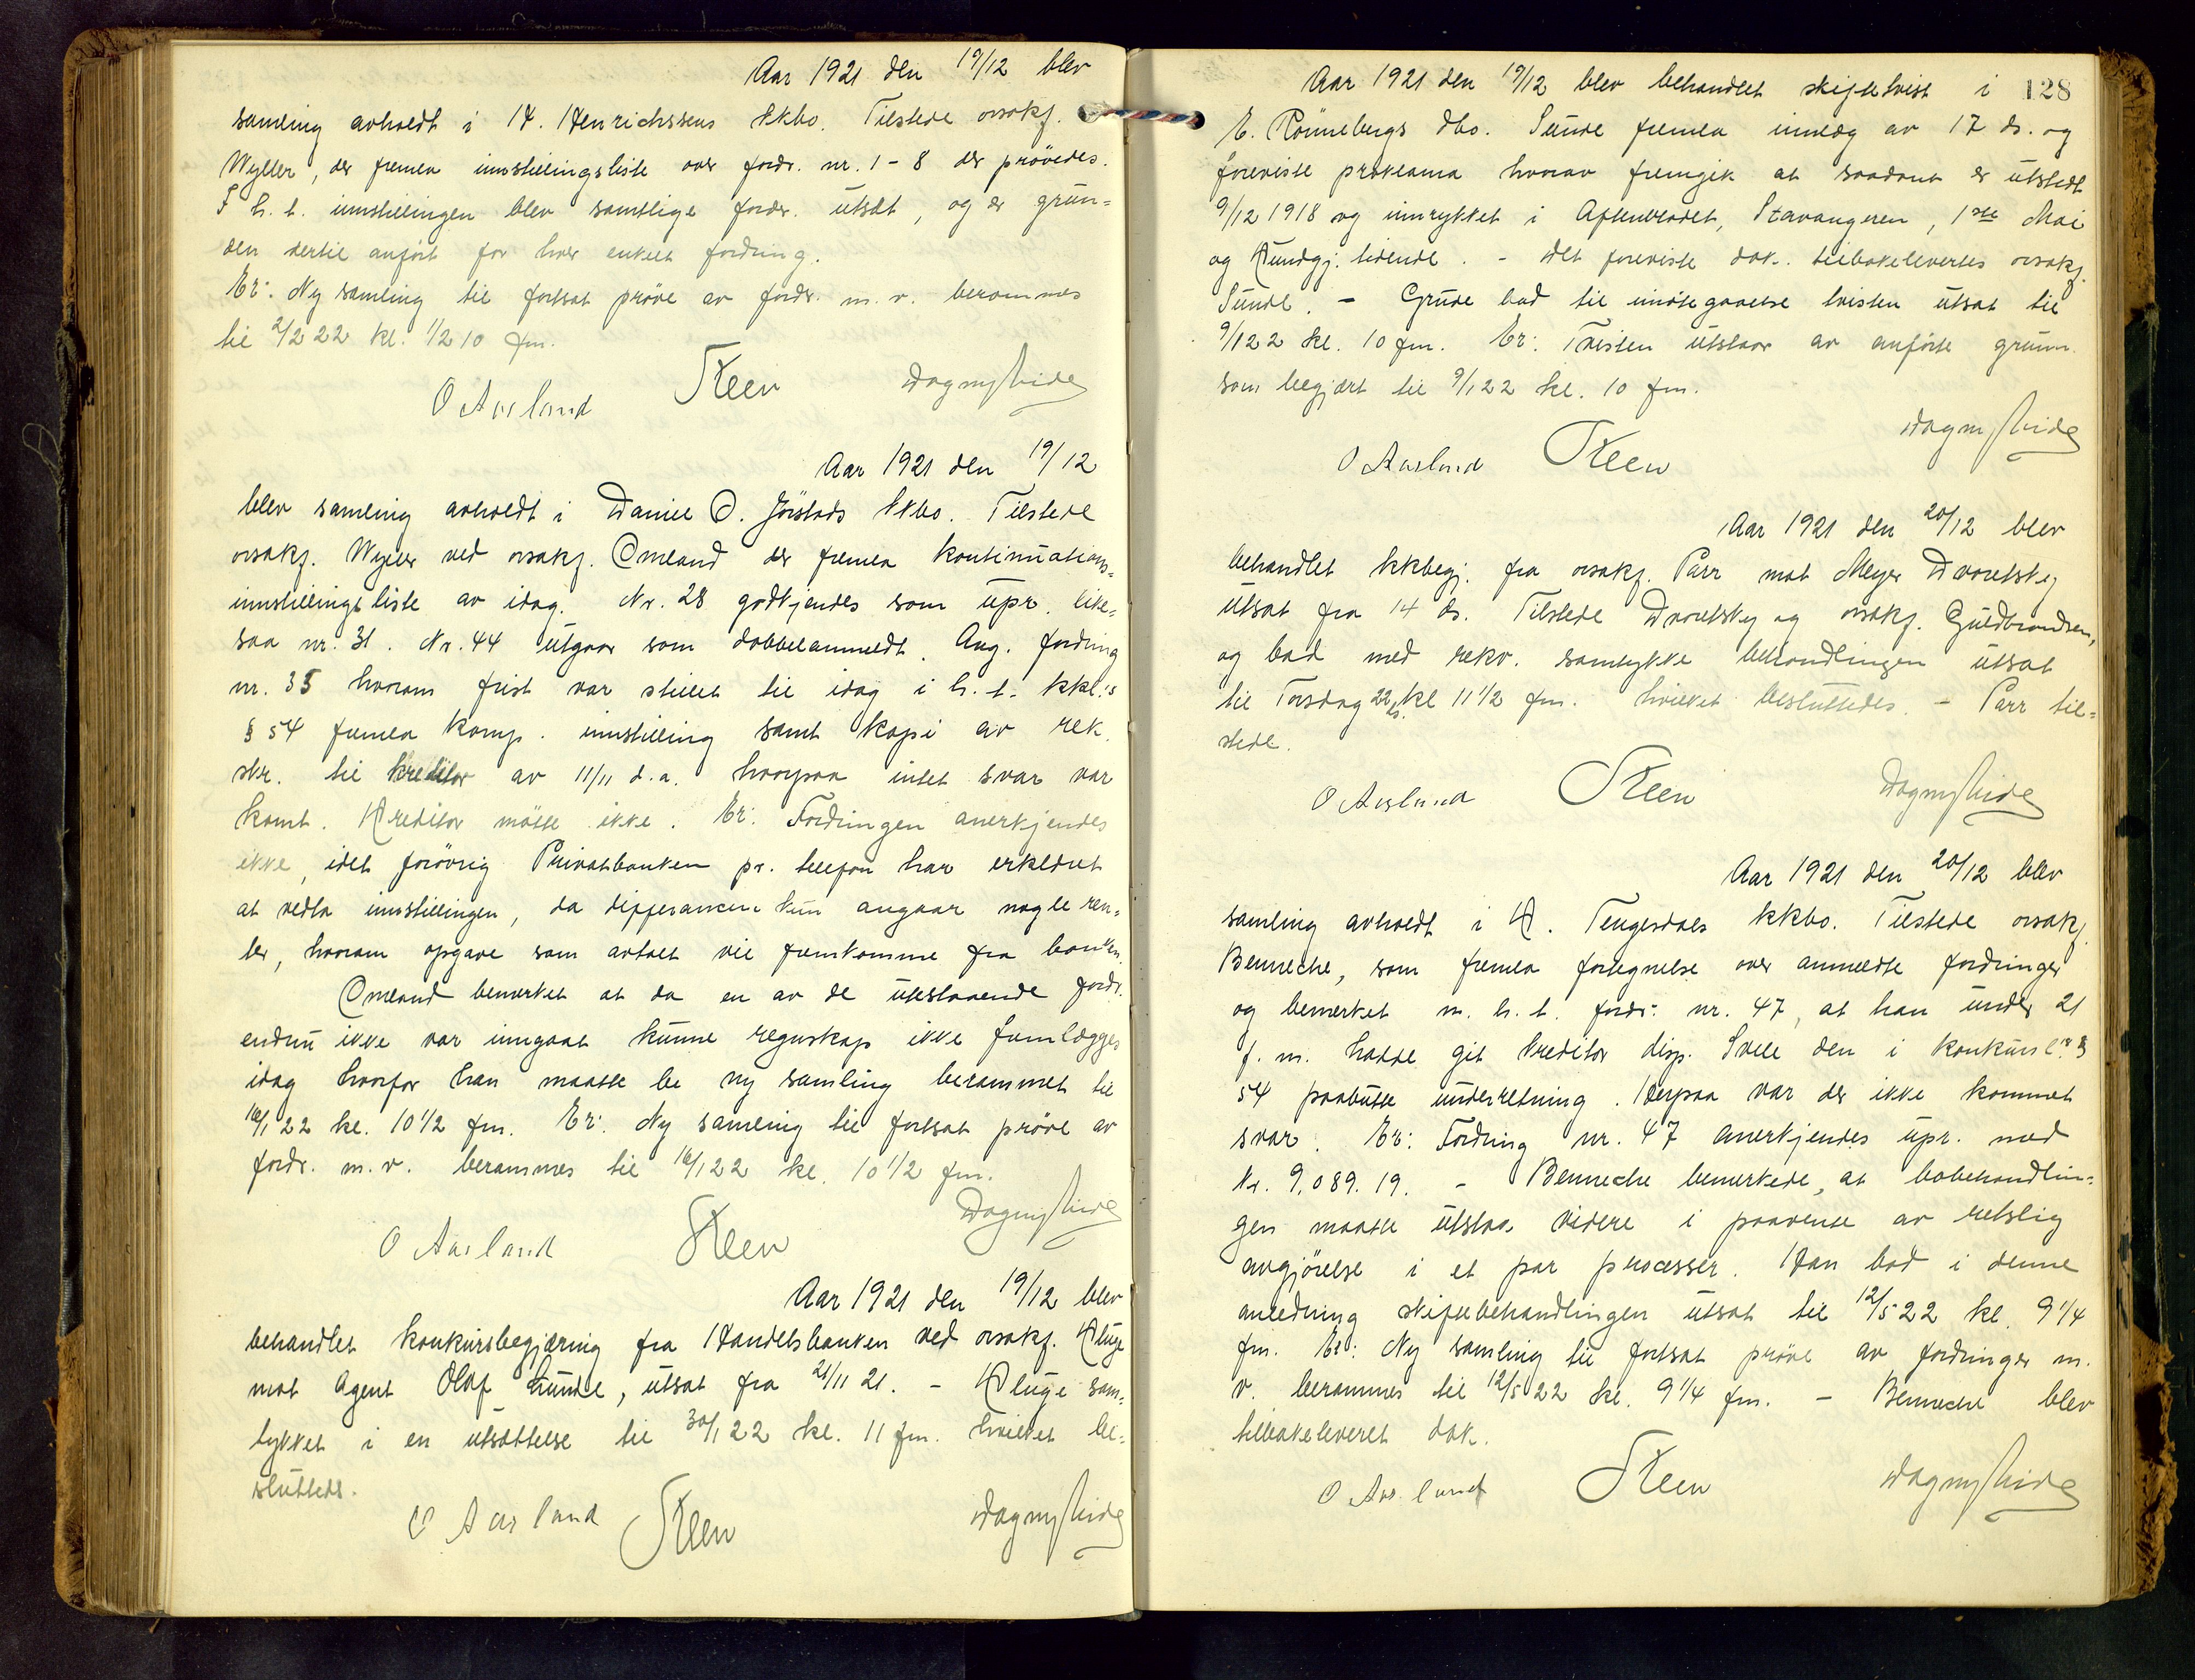 Aar 1921 den 19/12 blev
samling avholdt i H. Henrichsens kkbo. Tilstede orsakf.
Wyller, der fremla innstillingsliste over fordr. nr. 1-8 der prøvedes.
I h. t. innstillingen blev samtlige fordr. utsat, og er grun=
den dertil anført for hver enkelt fordring.
Er: Ny samling til fortsat prøve av fordr. m. v. berammes
til 2/2 22 kl. 1/2 10 fm.
O Aarland Steen Dagny Eide
Aar 1921 den 19/12
blev samling avholdt i Daniel O. Jørstads kkbo. Tilstede
orsakf. Wyller ved orsakf. Omland der fremla kontinuations=
innstillingsliste av idag. Nr. 28 godkjendes som upr. like=
saa nr. 31. Nr. 44 utgaar som dobbelanmeldt. Ang. fordring
nr. 35 hvorom frist var stillet til idag i h. t. kkl.'s
§ 54 fremla Komp. innstilling samt kopi av rek.
skr. til kreditor av 11/11 d.a. hvorpaa intet svar var
komt. Kreditor møtte ikke. Er: Fordringen anerkjendes
ikke, idet forøvrig Privatbanken pr. telefon har erklært
at vedta innstillingen, da differansen kun angaar nogle ren=
ter, hvorom opgave som avtalt vil fremkomme fra banken.
Omland bemerket at da en av de utestaaende fordr.
endnu ikke var inngaat kunne regnskap ikke fremlægges
idag hvorfor han maatte be ny samling berammet til
16/1 22 kl. 10 1/2 fm. Er: Ny samling til fortsat prøve av
fordr. m. v. berammes til 16/1 22 kl. 10 1/2 fm.
O Aarland Steen Dagny Eide
Aar 1921 den 19/12 blev
behandlet konkursbegjæring fra Handelsbanken ved orsakf. Kluge
mot Agent Olaf Lunde, utsat fra 21/11 21. - Kluge sam=
tykket i en utsættelse til 30/1 22 kl. 11 fm. hvilket be=
sluttedes.
O Aarland Steen Dagny Eide
128
Aar 1921 den 19/12 blev behandlet skiftetvist i
E. Rønnebergs dbo. Sunde fremla innlæg av 17 ds. og
foreviste proklama hvorav fremgik at saadant er utstedt
9/12 1918 og innrykket i Aftenbladet, Stavangeren, 1ste Mai
og Kundgj. tidende. - Det foreviste dok. tilbakelevertes orsakf.
Sunde. - Grude bad til imøtegaaelse tvisten utsat til
9/1 22 kl. 10 fm. Er: Tvisten utstaar av anførte grunn
som begjært til 9/1 22 kl. 10 fm.
O Aarland Steen Dagny Eide
Aar 1921 den 20/12 blev
behandlet kkbegj. fra orsakf. Parr mot Meyer Dvoretsky
utsat fra 14 ds. Tilstede Dvoretsky og orsakf. Guldbrandsen,
og bad med rekv. samtykke behandlingen utsat
til Torsdag 22 ds. kl 11 1/2 fm. hvilket besluttedes. - Parr til=
stede.
O Aarland Steen Dagny Eide
Aar 1921 den 20/12 blev
samling avholdt i K. Tengesdals kkbo. Tilstede orsakf.
Benneche, som fremla fortegnelse over anmeldte fordringer
og bemerket m. h. t. fordr. nr. 47, at han under 21
f. m. hadde git kreditor disp. Svele den i konkursl.'s §
54 paabudte underretning. Herpaa var der ikke kommet
svar. Er: Fordring nr. 47 anerkjendes upr. med
Kr. 9.089.19. - Benneche bemerkede, at bobehandlin=
gen maatte utstaa videre i paavente av retslig
avgjørelse i et par processer. Han bad i denne
anledning skiftebehandlingen utsat til 12/5 22 kl. 9 1/4
fm. Er: Ny samling til fortsat prøve av fordringer m.
v. berammes til 12/5 22 kl. 9 1/4 fm. - Benneche blev
tilbakeleveret dok.
O Aarland Steen Dagny Eide